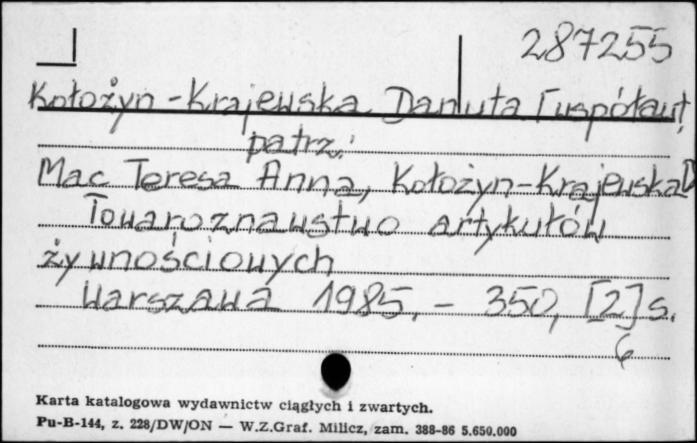 287255
Kołożyn-Krajewska Danuta [współaut.
patrz:
Mac Teresa Anna, Kołożyn-Krajewska D
Towaroznawstwo artykułów
żywnościowych
Warszawa 1985, - 350, [2] s.
6
Karta katalogowa wydawnictw ciągłych i zwartych.
Pu-B-144, z. 228/DW/ON — W.Z.Graf. Milicz, zam. 388-86 5.650.000